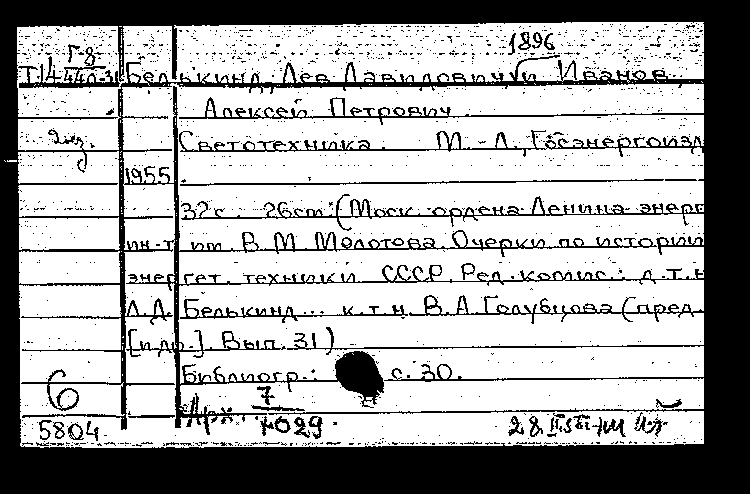 1896
Г8
Т14 440-31 Белькинд, Лев Давидович, и Иванов,
Алексей Петрович.
2 из. Светотехника. М.-Л., Госэнергоизд
1955.
32с. 26cm. (Моск. ордена Ленина энерг
ин-т им. В.М. Молотова. Очерки по истории
энергет. техники СССР. Ред. комис.: д.т.н
Л.Д. Белькинд... к.т.н. В.А. Голубцова (пред.
[и др.]. Вып. 31)
Библиогр.: с. 30.
6
5804
Арх. 7
1029.
28